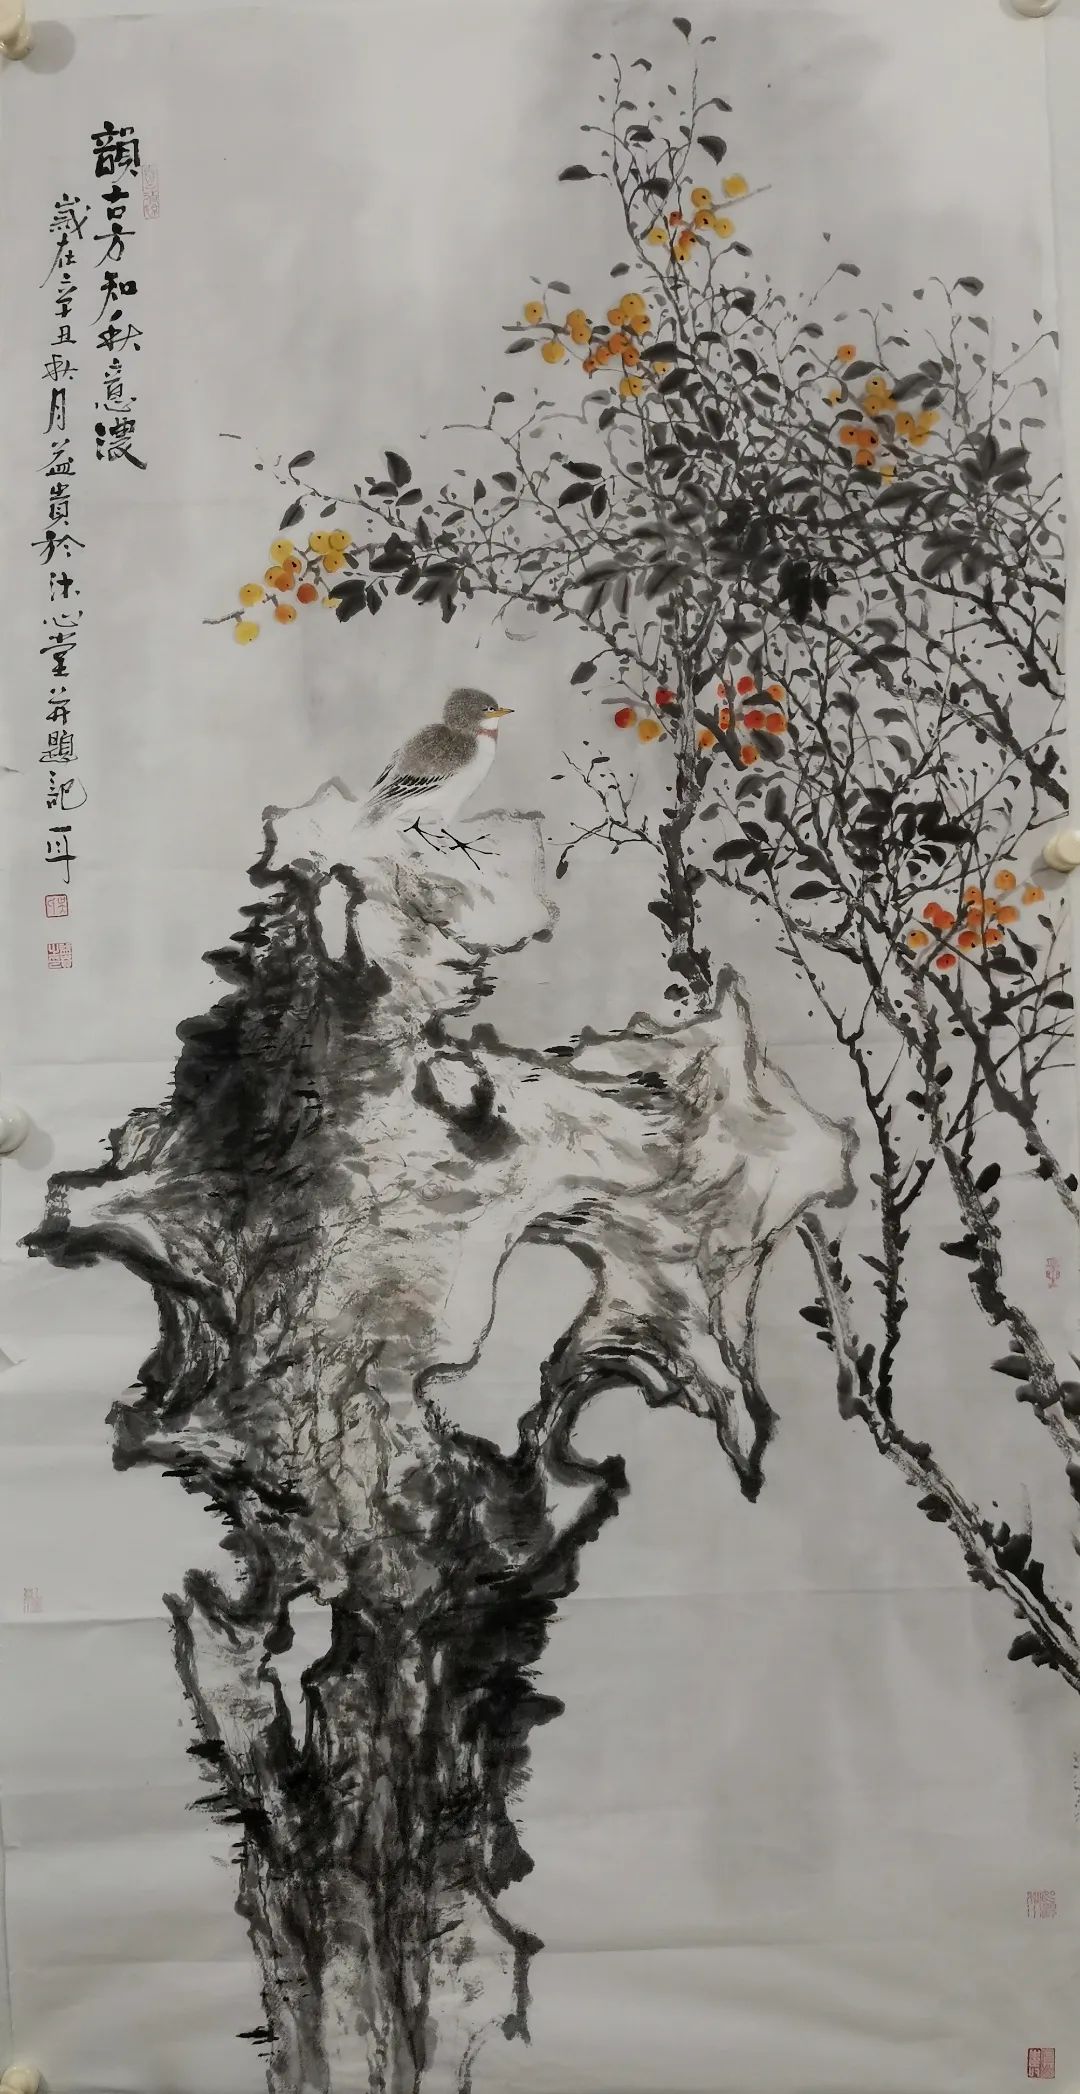 韻古方知秋意濃
歲在辛丑秋月益貴於沐心堂并題記耳